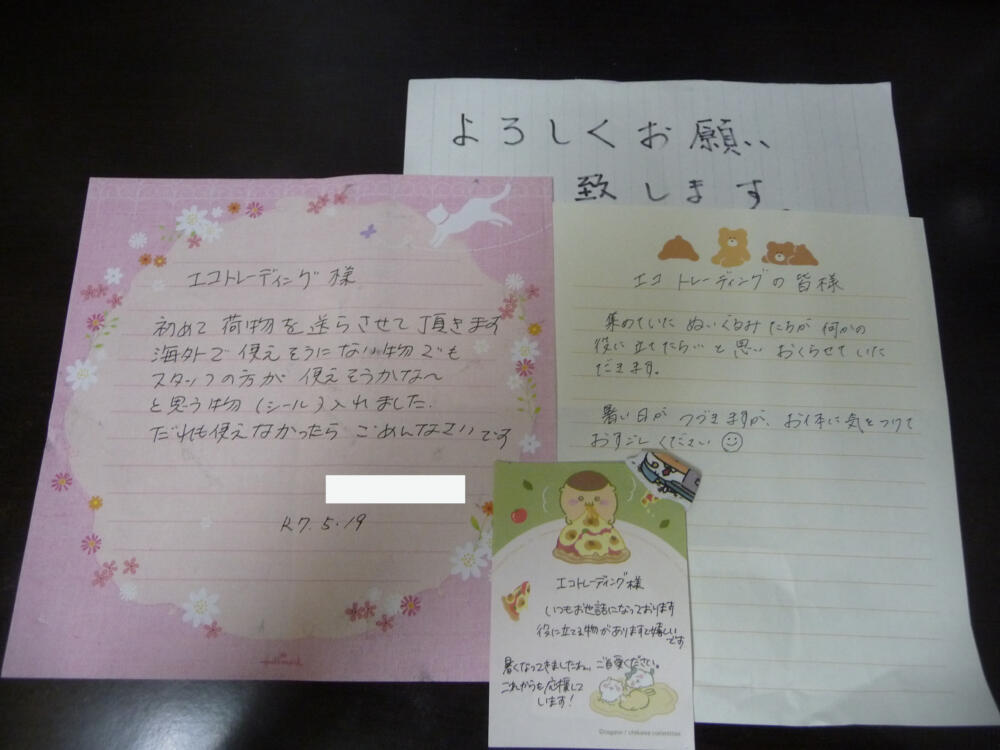 よろしくお願い
致します。
エコトレーディング様
初めて荷物を送らさせて頂きます
海外で使えそうにない物でも
スタッフの方が使えそうかな〜
と思う物(シール)入れました.
だれも使えなかったらごめんなさいです
R7.5.19
Hallmark
エコトレーディングの皆様
集めていたぬいぐるみたちが何かの
役に立てたらいいと思いおくらせていた
だきます。
暑い日がつづきますが、お体に気をつけて
おすごしください☺
エコトレーディング様
いつもお世話になっております
役に立てる物がありますと嬉しい
です
暑くなってきましたね。ご自愛ください。
これからも応援して
います!
©nagano / chiikawa committee